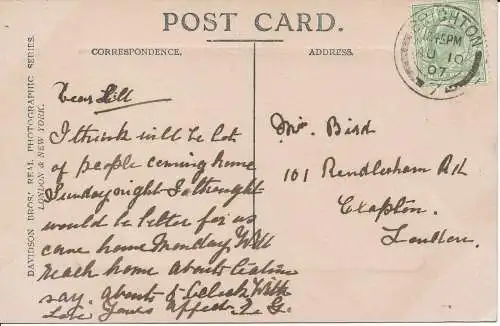 POST CARD.
CORRESPONDENCE.
ADDRESS.
BRIGHTON
45 PM
10
07
7
DAVIDSON BROS' REAL PHOTOGRAPHIC SERIES.
LONDON & NEW YORK.
Dear Lill
I think will be lot
of people coming home
Sunday night I thought
would be better for us
come home Monday Will
reach home about teatime
say. about 5 oclock With
Love Yours affect. L. G.
Bird
101 Rendlesham Rd
Clapton.
London.